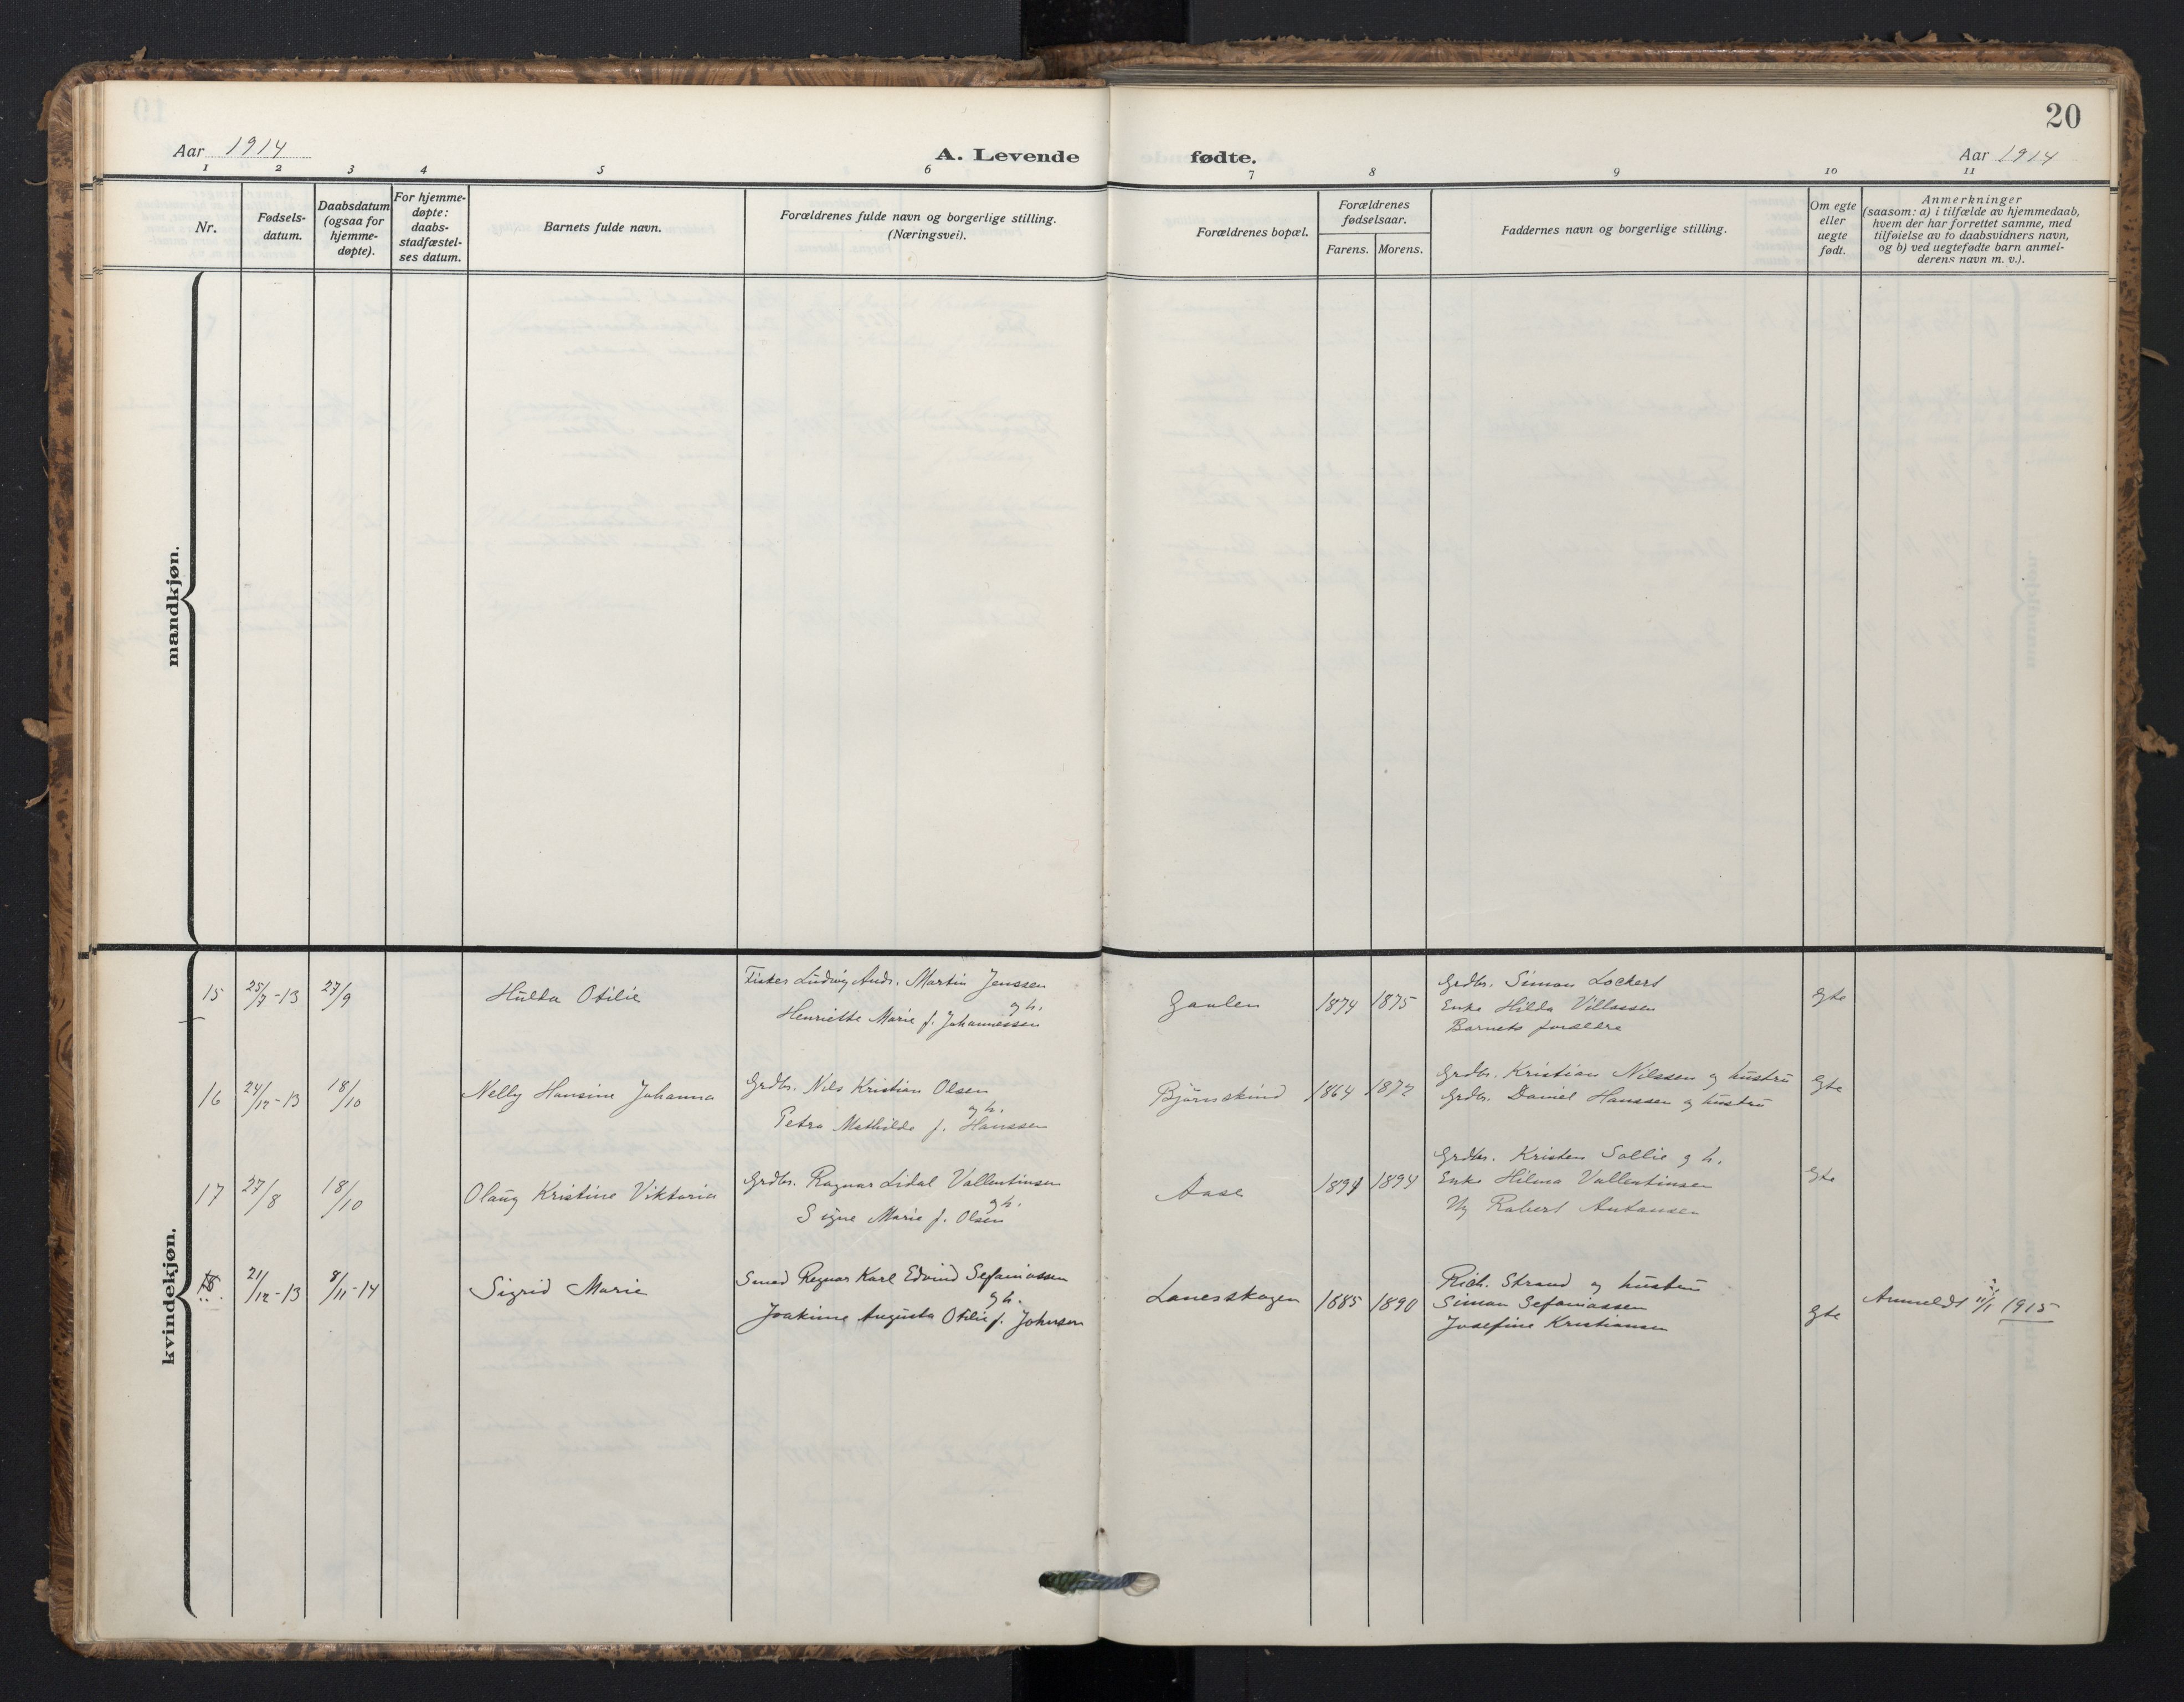 20
Aar 1914
A. Levende fødte.
Aar 1914
1 2 3 4 5 6 7 8 9 10 11
Nr.
Fødsels-
datum.
Daabsdatum
(ogsaa for
hjemme-
døpte).
For hjemme-
døpte:
daabs-
stadfæstel-
ses datum.
Barnets fulde navn.
Forældrenes fulde navn og borgerlige stilling.
(Næringsvei).
Forældrenes bopæl.
Forældrenes
fødselsaar.
Farens. Morens.
Faddernes navn og borgerlige stilling.
Om egte
eller
uegte
født.
Anmerkninger
(saasom: a) i tilfælde av hjemmedaab,
hvem der har forrettet samme, med
tilføielse av to daabsvidners navn,
og b) ved uegtefødte barn anmel-
derens navn m. v.).
mandkjøn.
kvindekjøn.
15 25/7-13 27/9 Hulda Otilie
Fisker Ludvig Andr. Martin Jenssen
g h.
Henriette Marie f. Johannessen
Gaulen 1874 1875
Grdbr. Simon Lockert
Enke Hilda Villassen
Barnets forældre
Egte
16 24/12-13 18/10 Nelly Hansine Johanna
Grdbr. Nils Kristian Olsen
g h.
Petra Mathilde f. Hanssen
Bjørnskind 1864 1872
Grdbr. Kristian Nilssen og hustru
Grdbr. Daniel Hanssen og hustru
Egte
17 27/8 18/10 Olaug Kristine Viktoria
Grdbr. Ragnar Lidal Vallentinsen
g h.
Signe Marie f. Olsen
Aase 1894 1894
Grdbr. Kristen Sollie g h.
Enke Hilma Vallentinsen
Ug Robert Antonsen
Egte
21/12-13 8/11-14 Sigrid Marie
Smed Regnar Karl Edvind Sefaniassen
g h.
Joakime Augusta Otilie f. Johnsen
Lanesskogen 1885 1890
Rich. Strand og hustru
Simon Sefaniassen
Josefine Kristiansen
Egte
Anmeldt 11/1 1915